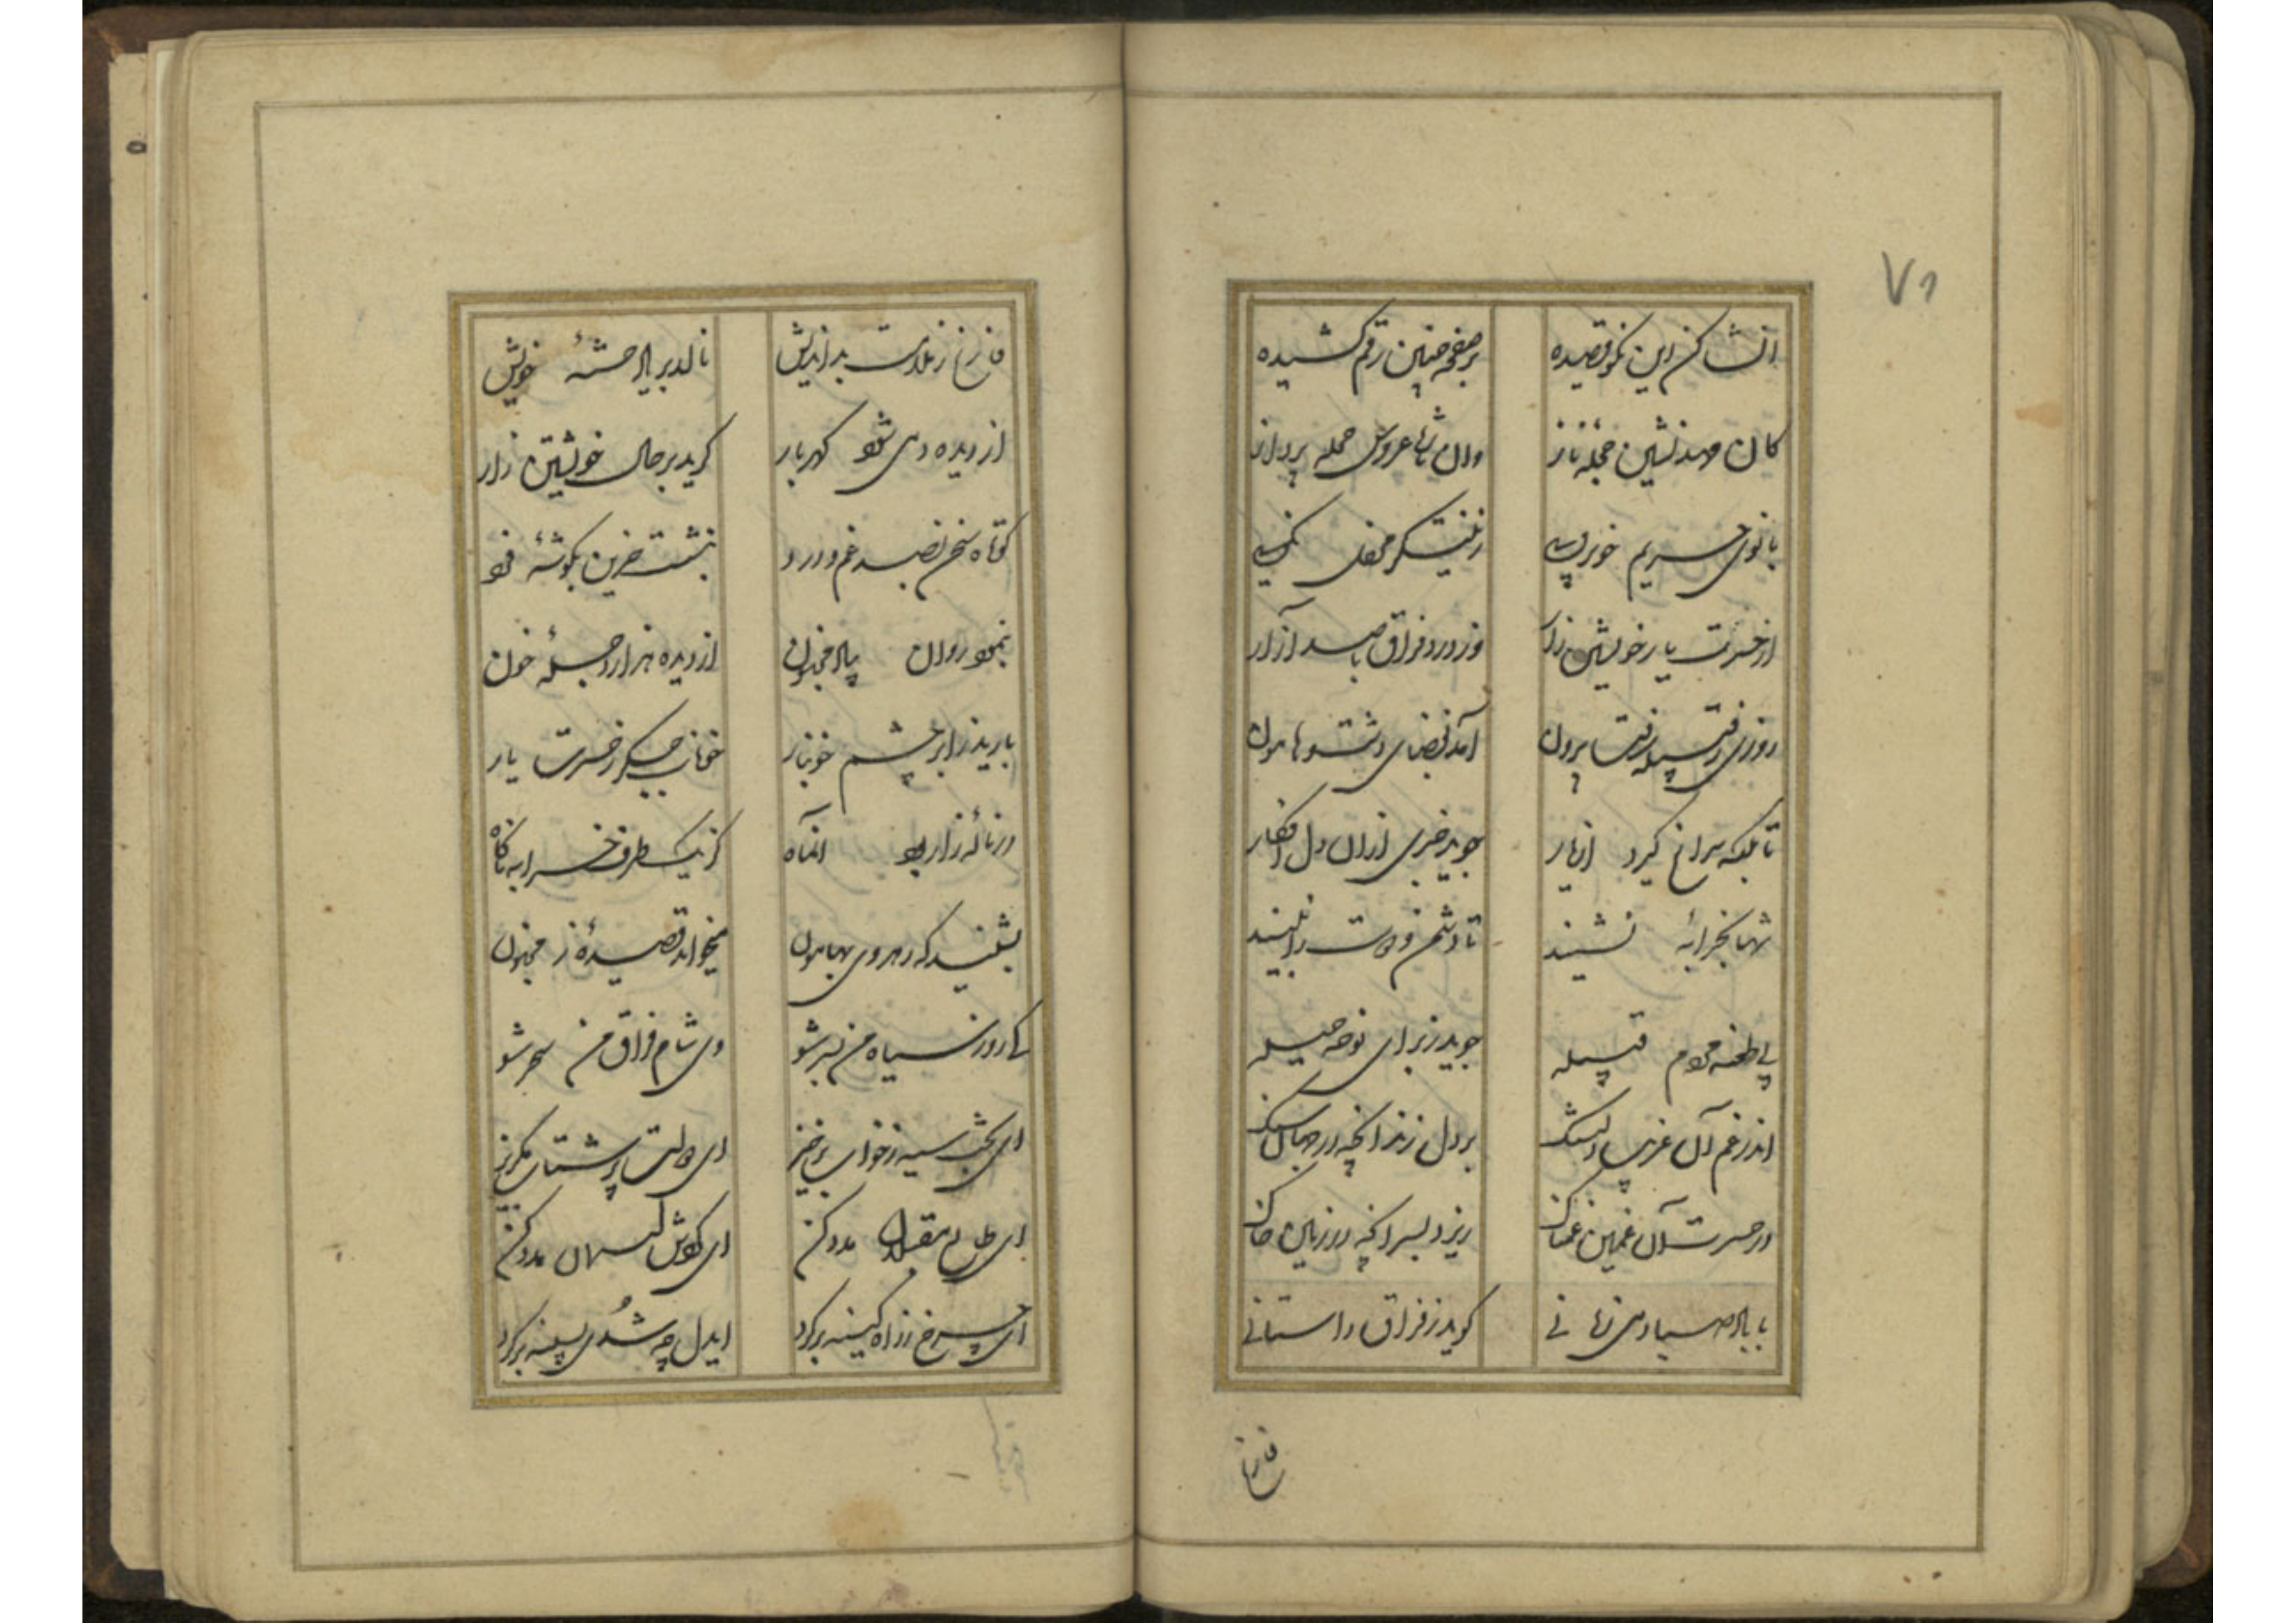 ۷۱
انشا کن این نکو قصیده
بر صفحه چنین رقم کشیده
کان مهد نشین حجله ناز
وان تازه عروس حجله پرداز
بانوی حریم خوبرویی
از حسرت یار خویشتن زار
وز درد فراق با صد آزار
روزی ز قبیله رفت بیرون
آمد بفضای دشت و هامون
تا بلکه سراغ گیرد از یار
جوید خبری ازان دل افکار
تنها بخرابه نشیند
تا دشمن و دوست را نبیند
بی طعنه مردم قبیله
جوید ز برای نوحه حیله
اندر غم آن غریب دلتنگ
بر دل زند آنچه در جهان سنگ
در حسرت آن غمین غمناک
ریزد بسر آنچه در زمین خاک
با باد صبا دمی نهانی
گوید ز فراق داستانی
فارغ
فارغ ز ملامت بداندیش
نالد بر یار خسته خویش
از دیده دمی شود گهربار
گرید بر حال خویشتن زار
کوتاه سخن بصد غم و درد
بنشست حزین بگوشه فرد
بنمود روان بیاد مجنون
از دیده هزار دجله خون
بارید ز ابر چشم خونبار
خوناب جگر ز حسرت یار
در ناله زار بود آنماه
کز یک طرف خرابه ناگاه
بشنید که رهروی بهامون
میخواند قصیده ز مجنون
کای روز سیاه من بسر شو
وی شام فراق من سحر شو
ای بخت سیه ز خواب برخیز
ای طالع مقبلان مدد کن
ای چرخ ز راه کینه برگرد
ایدل چه شدی بسینه برگرد